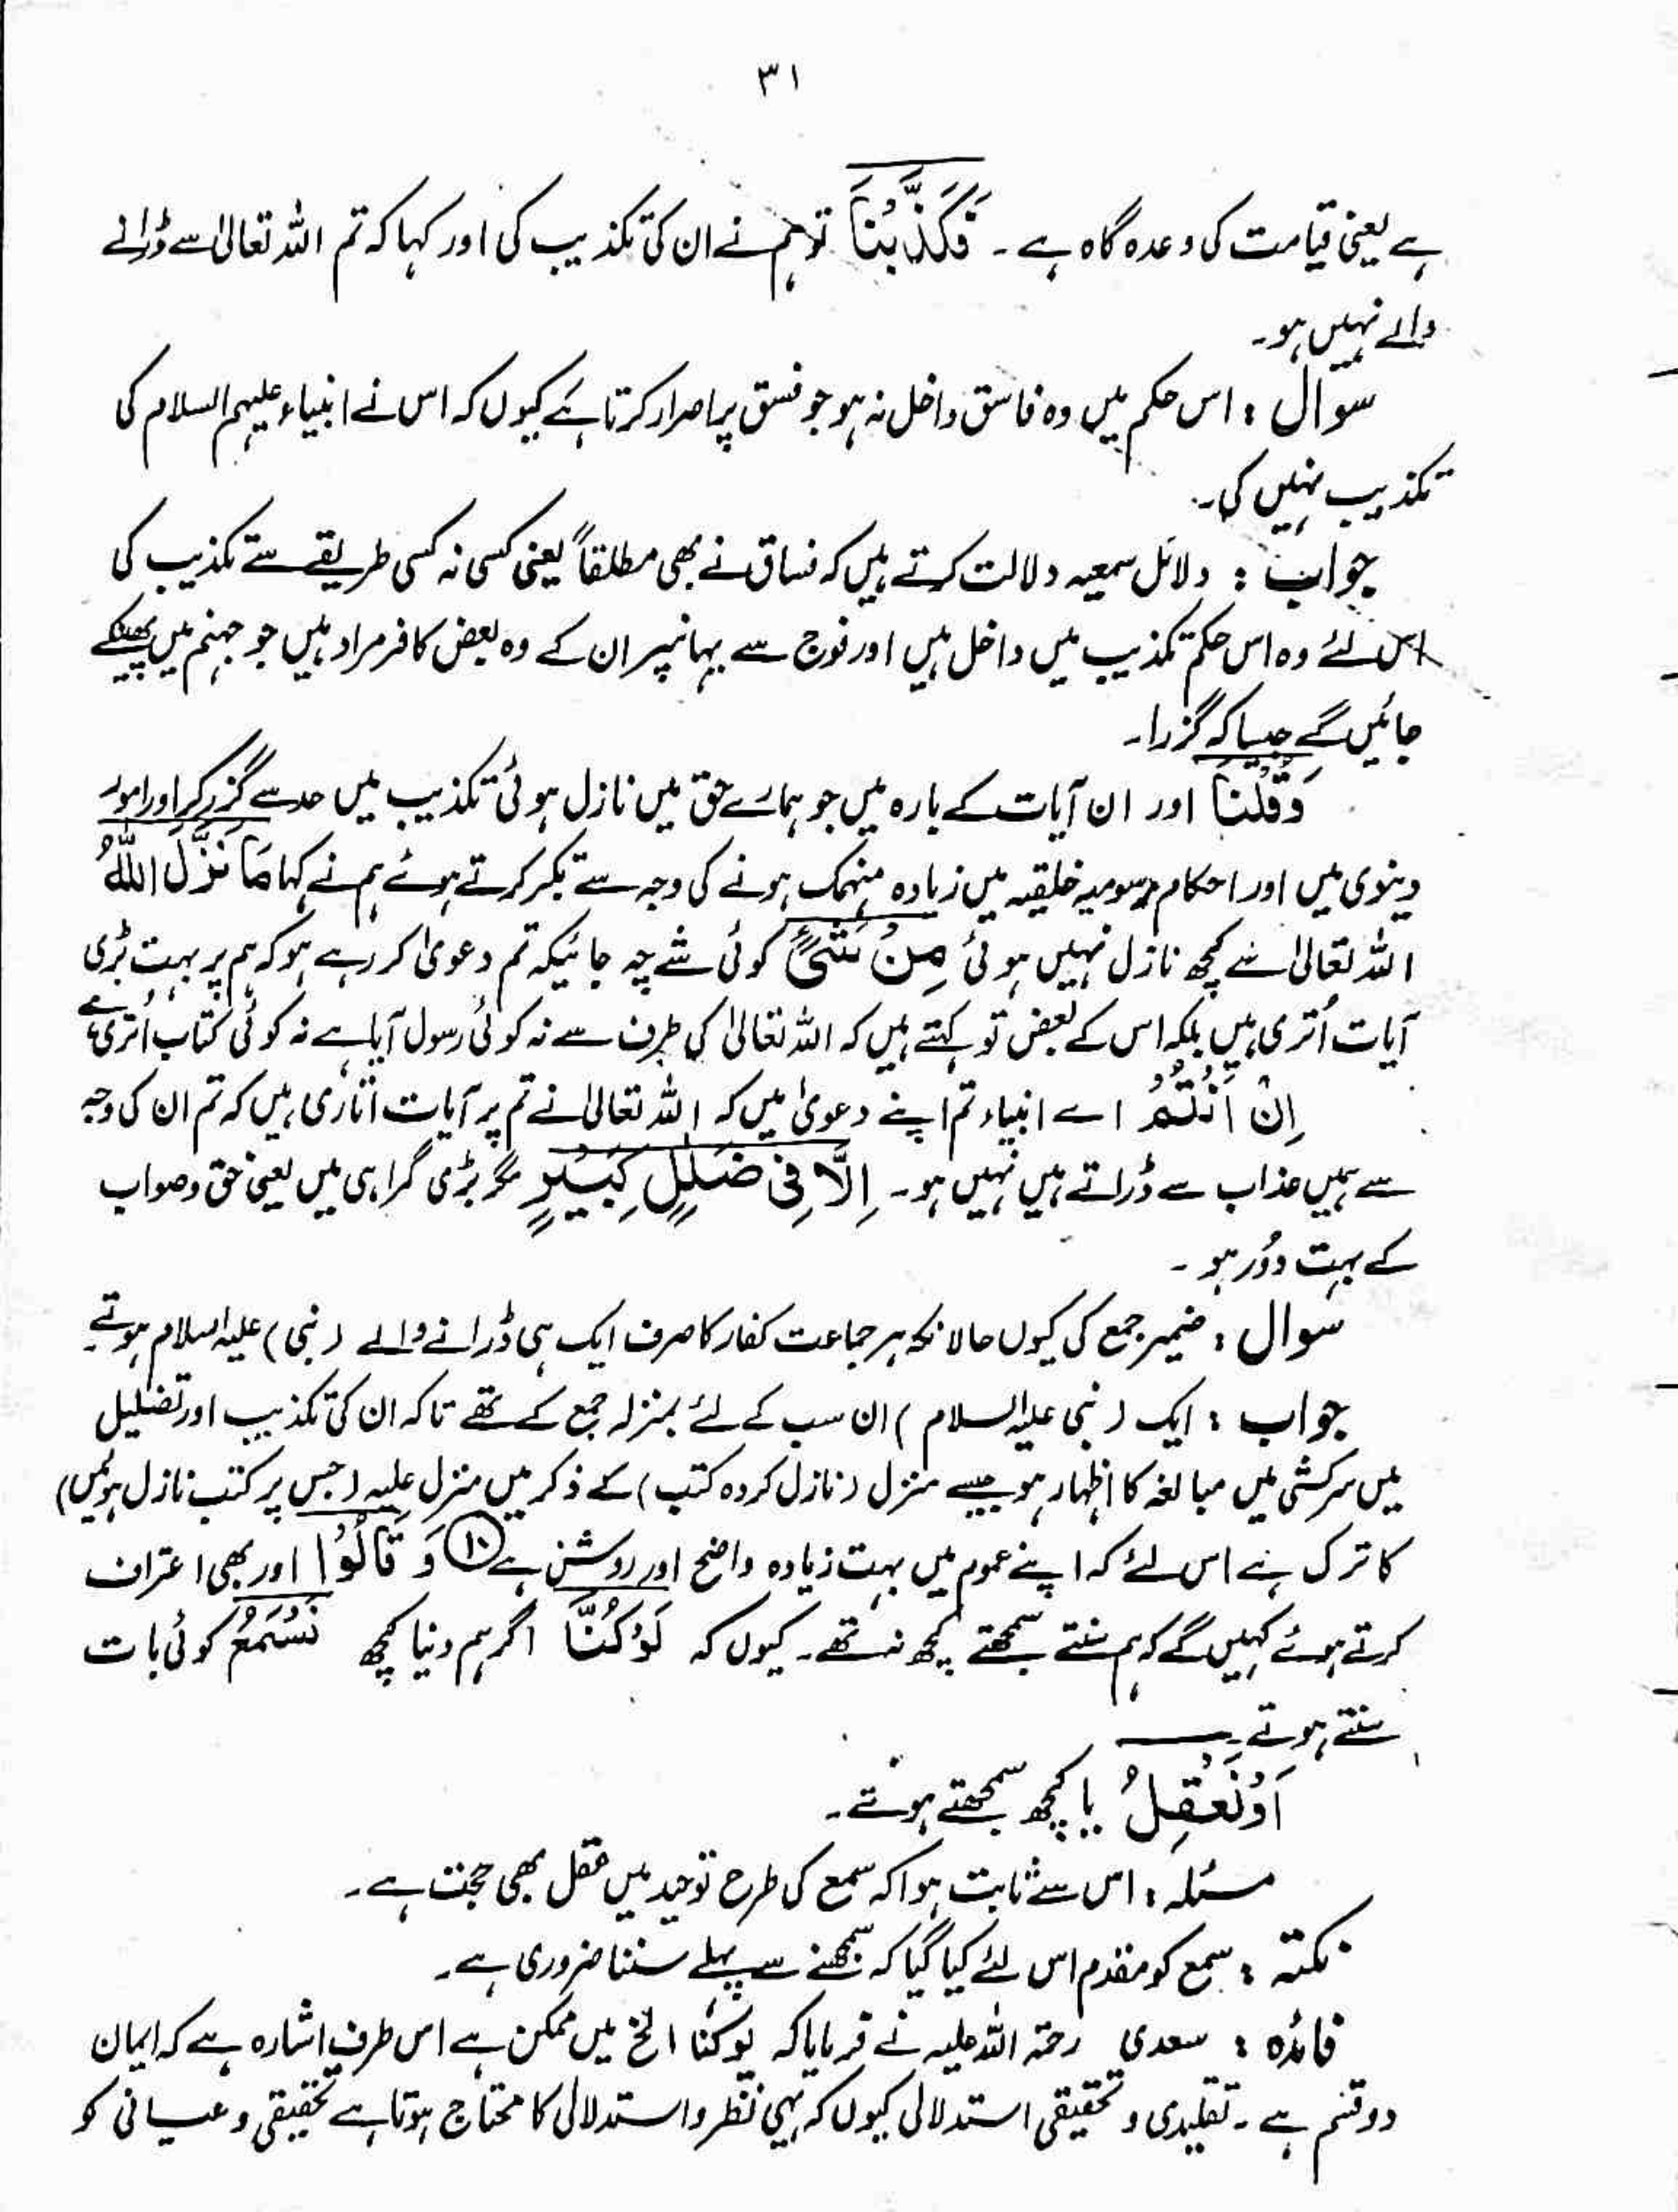 ۳۱
ہے یعنی قیامت کی وعدہ گاہ ہے ۔ فَکَذَّبْنَا تو ہم نے ان کی تکذیب کی اور کہا کہ تم اللہ تعالیٰ سے ڈرانے
والے نہیں ہو۔
سوال : اس حکم میں وہ فاسق داخل نہ ہو جو فسق پر اصرار کرتا ہے کیوں کہ اس نے انبیاء علیہم السلام کی
تکذیب نہیں کی۔
جواب : دلائل سمعیہ دلالت کرتے ہیں کہ فساق نے بھی مطلقاً یعنی کسی نہ کسی طریقے سے تکذیب کی
اس لئے وہ اس حکم تکذیب میں داخل ہیں اور فوج سے یہانپر ان کے وہ بعض کافر مراد ہیں جو جہنم میں پھینکے
جائیں گے جیسا کہ گزرا۔
وَقُلْنَا اور ان آیات کے بارہ میں جو ہمارے حق میں نازل ہوئی تکذیب میں حد سے گزر کر اور امور
دینوی میں اور احکام رسومیہ خلیقیہ میں زیادہ منہمک ہونے کی وجہ سے تکبر کرتے ہوئے ہم نے کہا مَا نَزَّلَ اللّٰہُ
اللہ تعالیٰ نے کچھ نازل نہیں ہوئی مِنْ شَیْءٍ کوئی شے چہ جائیکہ تم دعویٰ کر رہے ہو کہ ہم پر بہت بڑی
آیات اُتری ہیں بلکہ اس کے بعض تو کہتے ہیں کہ اللہ تعالیٰ کی طرف سے نہ کوئی رسول آیا ہے نہ کوئی کتاب اُتری ہے
اِنْ اَنْتُمْ اے انبیاء تم اپنے دعویٰ میں کہ اللہ تعالیٰ نے تم پر آیات اتاری ہیں کہ تم ان کی وجہ
سے ہمیں عذاب سے ڈراتے ہیں نہیں ہو۔ اِلَّا فِیْ ضَلٰلٍ کَبِیْرٍ مگر بڑی گمراہی میں یعنی حق و صواب
کے بہت دُور ہو ۔
سوال : ضمیر جمع کی کیوں حالانکہ ہر جماعت کفار کا صرف ایک ہی ڈرانے والے (نبی) علیہ السلام ہوتے۔
جواب : ایک (نبی علیہ السلام) ان سب کے لئے بمنزلہ جمع کے تھے تاکہ ان کی تکذیب اور تضلیل
میں سرکشی میں مبالغہ کا اظہار ہو جیسے منزل (نازل کردہ کتب) کے ذکر میں منزل علیہ (جس پر کتب نازل ہوئیں)
کا ترک ہے اس لئے کہ اپنے عموم میں بہت زیادہ واضح اور روشن ہے ۱۰ وَ قَالُوْا اور بھی اعتراف
کرتے ہوئے کہیں گے کہ ہم سنتے سمجھتے کچھ نہ تھے۔ کیوں کہ لَوْ کُنَّا اگر ہم دنیا کچھ نَسْمَعُ کوئی بات
سنتے ہوتے۔
اَوْ نَعْقِلُ یا کچھ سمجھتے ہوتے۔
مسئلہ : اس سے ثابت ہوا کہ سمع کی طرح توحید میں عقل بھی حجت ہے۔
نکتہ : سمع کو مقدم اس لئے کیا گیا کہ سمجھنے سے پہلے سننا ضروری ہے۔
فائدہ : سعدی رحمۃ اللہ علیہ نے فرمایا کہ لو کنا الخ میں ممکن ہے اس طرف اشارہ ہے کہ ایمان
دو قسم ہے ۔ تقلیدی و تحقیقی استدلالی کیوں کہ یہی نظر و استدلالی کا محتاج ہوتا ہے تحقیقی و عیسانی کو